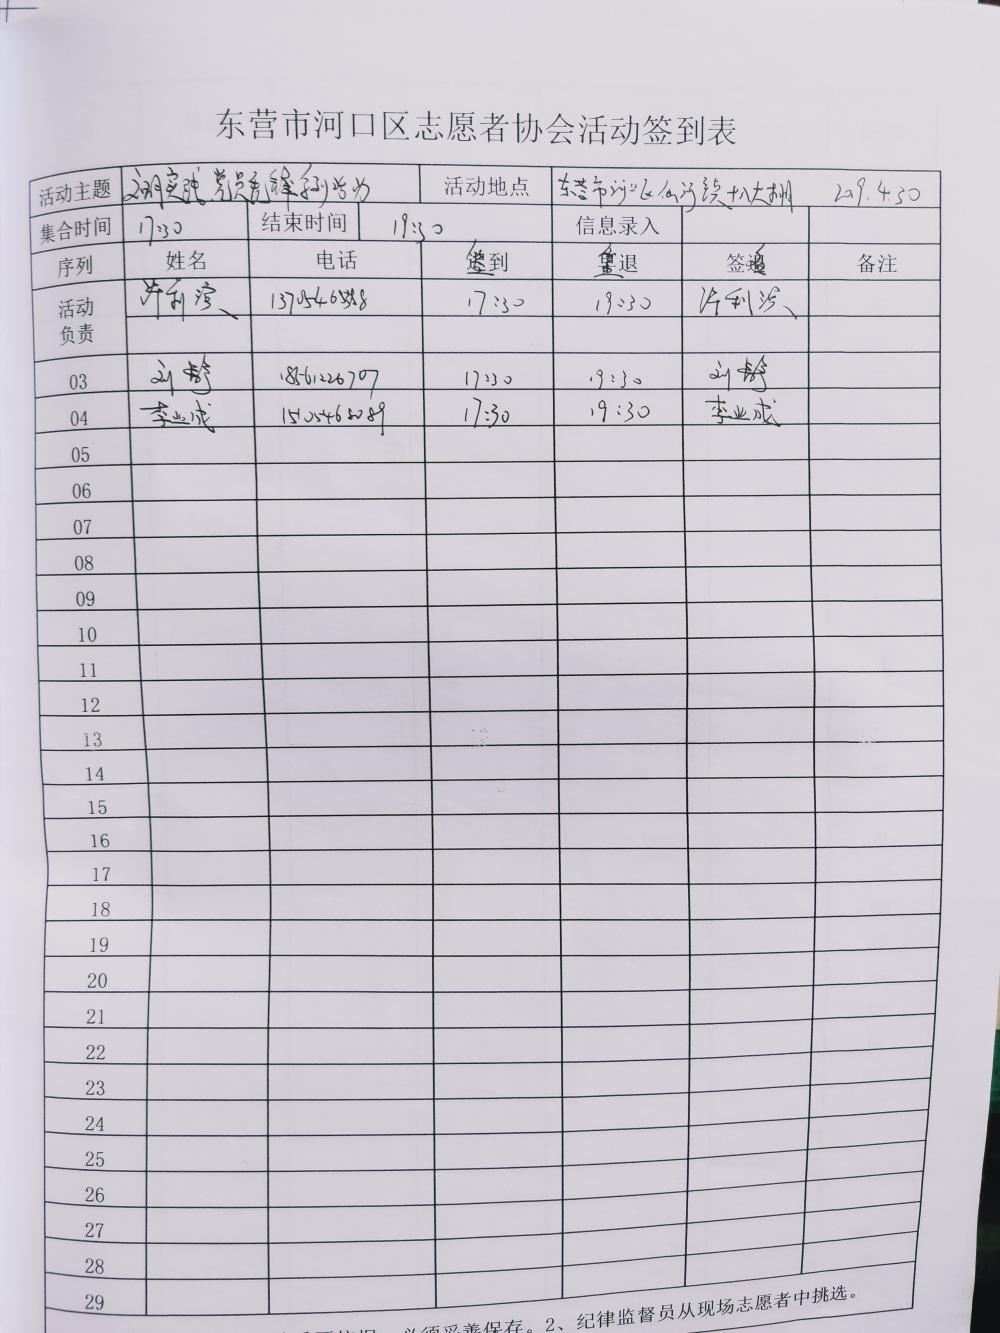 东营市河口区志愿者协会活动签到表
活动主题 文明实践 党员先锋系列活动 活动地点 东营市河口区 大棚 2019.4.30
集合时间 17:30 结束时间 19:30 信息录入
序列 姓名 电话 签到 签退 备注
活动
负责
利滨 17:30 19:30 利滨
03 刘 18561226707 17:30 19:30 刘
04 李业成 17:30 19:30 李业成
05
06
07
08
09
10
11
12
13
14
15
16
17
18
19
20
21
22
23
24
25
26
27
28
29
必须妥善保存。2、纪律监督员从现场志愿者中挑选。